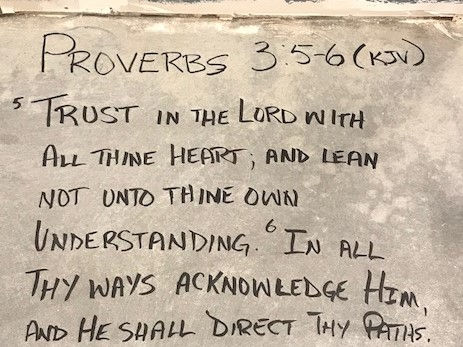 PROVERBS 3:5-6 (KJV)
5 TRUST IN THE LORD WITH
ALL THINE HEART; AND LEAN
NOT UNTO THINE OWN
UNDERSTANDING. 6 IN ALL
THY WAYS ACKNOWLEDGE HIM,
AND HE SHALL DIRECT THY PATHS.